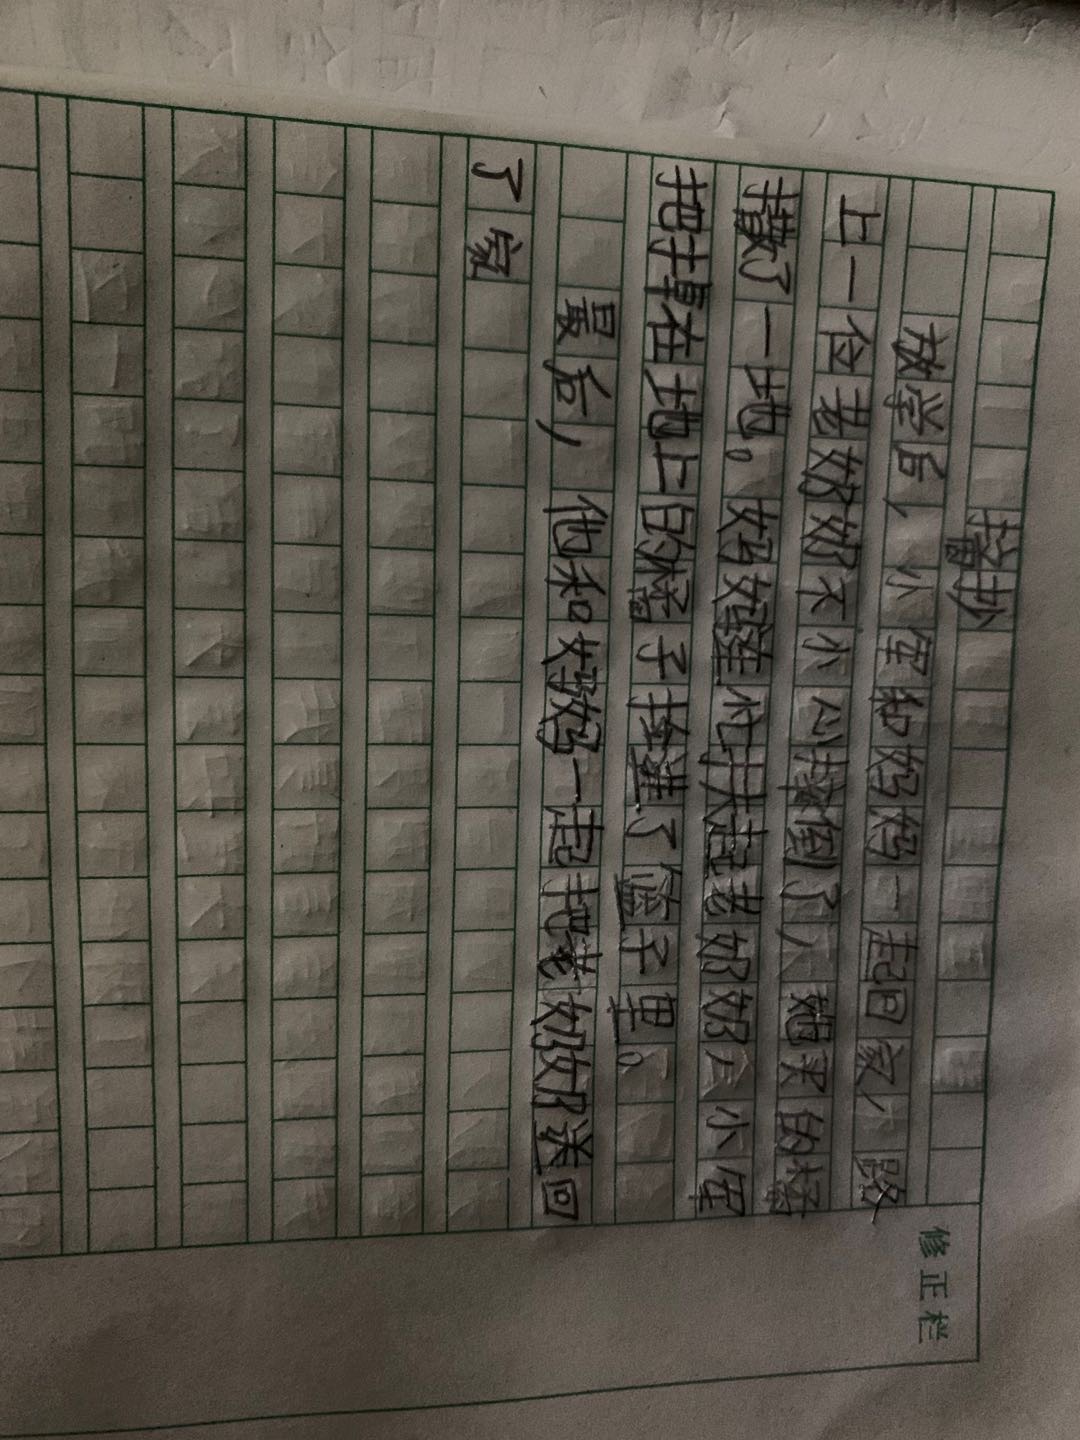 摘抄
放学后，小军和妈妈一起回家，路
上一位老奶奶不小心摔倒了，她买的橘
撒了一地。妈妈忙扶起老奶奶，小军
把掉在地上的橘子捡进了篮子里。
最后，他和妈妈一起把老奶奶送回
了家
修正栏